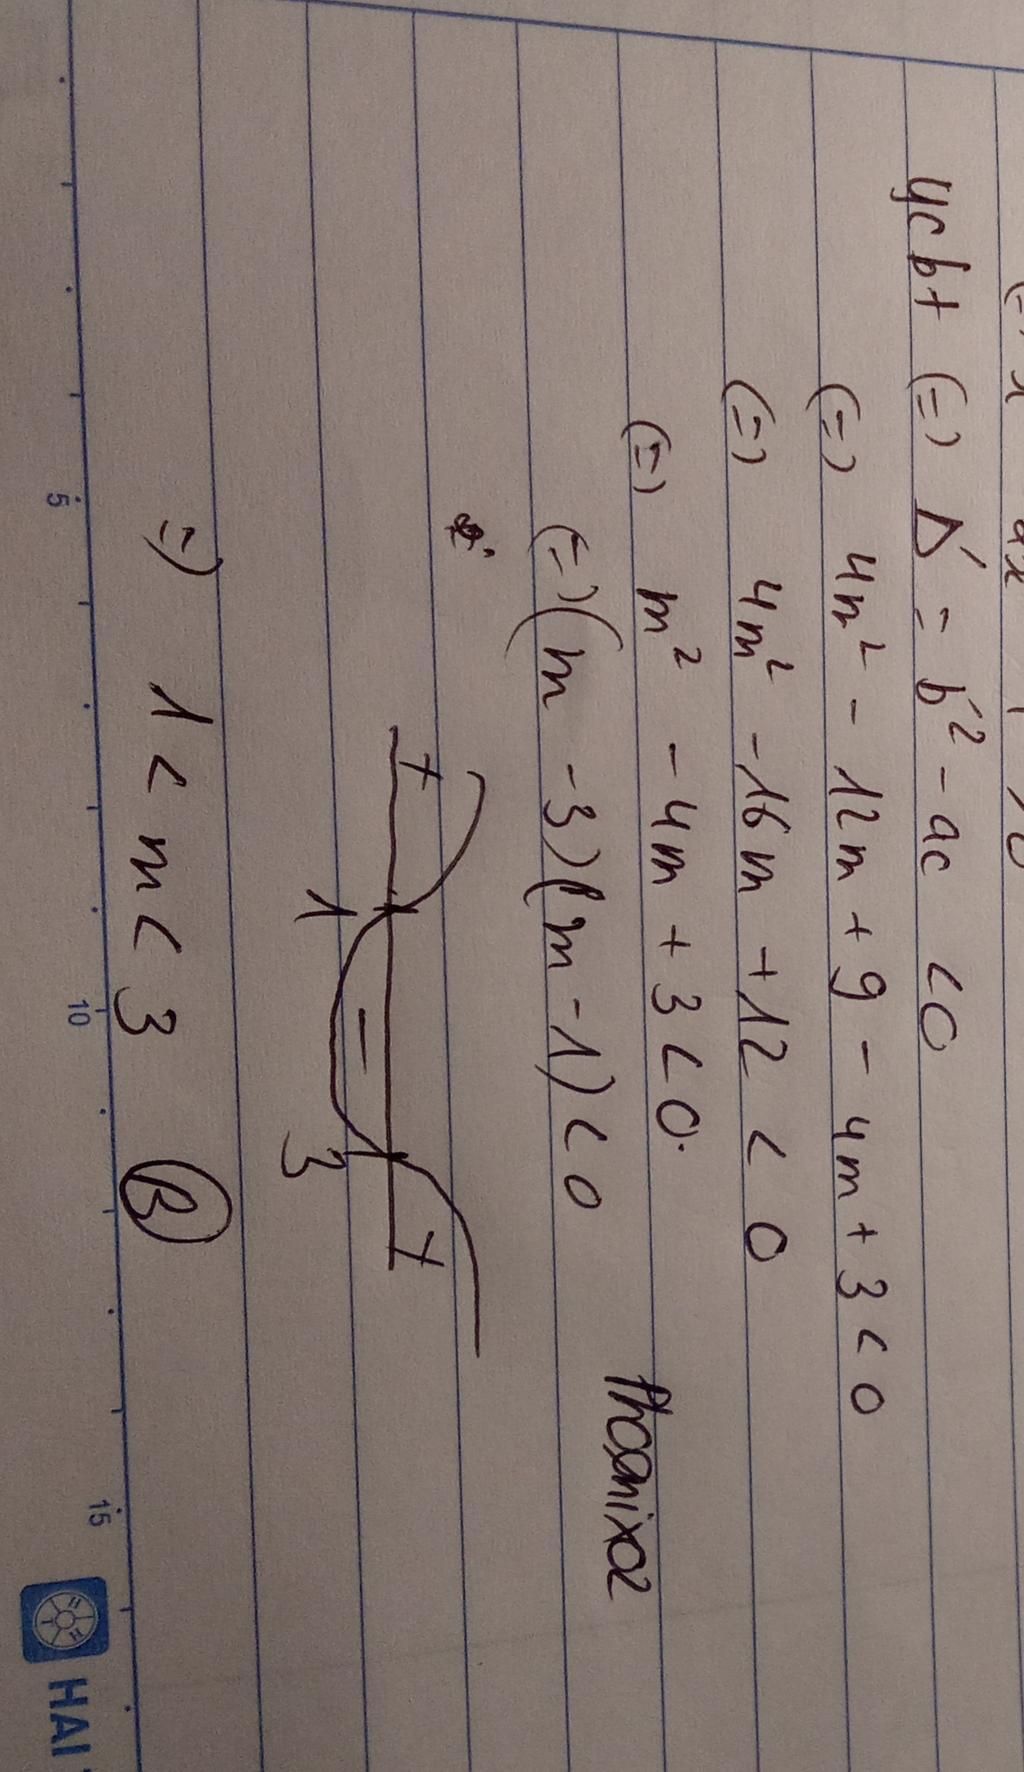 ycbt (=) Δ' = b'² - ac < 0
(=) 4m² - 12m + 9 - 4m + 3 < 0
(=) 4m² - 16m + 12 < 0
(=) m² - 4m + 3 < 0.
(=) (m - 3)(m - 1) < 0
+ 1 - 3 +
=) 1 < m < 3 B
5 10 15
HAI